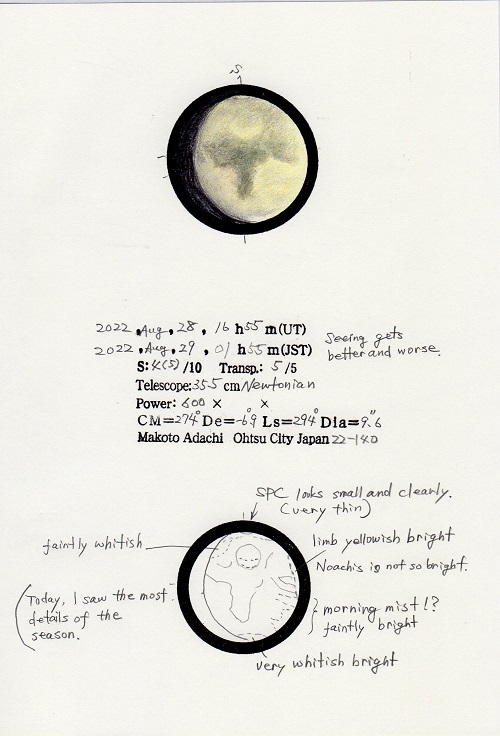 S
2022, Aug, 28, 16 h 55 m (UT)
2022, Aug, 29, 01 h 55 m (JST)
Seeing gets
better and worse.
S: 4(5) /10 Transp.: 5 /5
Telescope: 35.5 cm Newtonian
Power: 600 × ×
CM=274° De=-6.9° Ls=294° Dia=9.6"
Makoto Adachi Ohtsu City Japan 22-140
SPC looks small and clearly.
(very thin)
faintly whitish
limb yellowish bright
Noachis is not so bright.
Today, I saw the most
details of the
season.
morning mist!?
faintly bright
very whitish bright